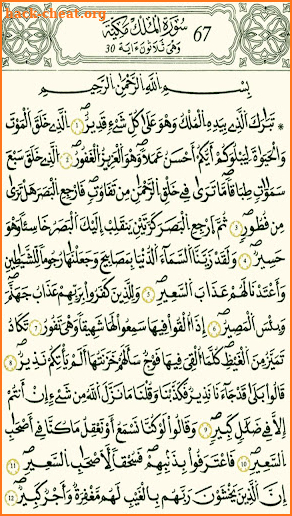 hack-cheat.org
سُورَةُ الْمُلْكِ مَكِّيَّةٌ 67
وَهِيَ ثَلَاثُونَ ءَايَةً 30
بِسْمِ اللَّهِ الرَّحْمَٰنِ الرَّحِيمِ
تَبَٰرَكَ الَّذِي بِيَدِهِ الْمُلْكُ وَهُوَ عَلَىٰ كُلِّ شَيْءٍ قَدِيرٌ ١ الَّذِي خَلَقَ الْمَوْتَ
وَالْحَيَوٰةَ لِيَبْلُوَكُمْ أَيُّكُمْ أَحْسَنُ عَمَلًا وَهُوَ الْعَزِيزُ الْغَفُورُ ٢ الَّذِي خَلَقَ سَبْعَ
سَمَٰوَٰتٍ طِبَاقًا مَّا تَرَىٰ فِي خَلْقِ الرَّحْمَٰنِ مِن تَفَٰوُتٍ فَارْجِعِ الْبَصَرَ هَلْ تَرَىٰ
مِن فُطُورٍ ٣ ثُمَّ ارْجِعِ الْبَصَرَ كَرَّتَيْنِ يَنقَلِبْ إِلَيْكَ الْبَصَرُ خَاسِئًا وَهُوَ
حَسِيرٌ ٤ وَلَقَدْ زَيَّنَّا السَّمَاءَ الدُّنْيَا بِمَصَٰبِيحَ وَجَعَلْنَٰهَا رُجُومًا لِّلشَّيَٰطِينِ
وَأَعْتَدْنَا لَهُمْ عَذَابَ السَّعِيرِ ٥ وَلِلَّذِينَ كَفَرُوا بِرَبِّهِمْ عَذَابُ جَهَنَّمَ
وَبِئْسَ الْمَصِيرُ ٦ إِذَا أُلْقُوا فِيهَا سَمِعُوا لَهَا شَهِيقًا وَهِيَ تَفُورُ ٧ تَكَادُ
تَمَيَّزُ مِنَ الْغَيْظِ كُلَّمَا أُلْقِيَ فِيهَا فَوْجٌ سَأَلَهُمْ خَزَنَتُهَا أَلَمْ يَأْتِكُمْ نَذِيرٌ ٨
قَالُوا بَلَىٰ قَدْ جَاءَنَا نَذِيرٌ فَكَذَّبْنَا وَقُلْنَا مَا نَزَّلَ اللَّهُ مِن شَيْءٍ إِنْ أَنتُمْ
إِلَّا فِي ضَلَٰلٍ كَبِيرٍ ٩ وَقَالُوا لَوْ كُنَّا نَسْمَعُ أَوْ نَعْقِلُ مَا كُنَّا فِي أَصْحَٰبِ
السَّعِيرِ ١٠ فَاعْتَرَفُوا بِذَنبِهِمْ فَسُحْقًا لِّأَصْحَٰبِ السَّعِيرِ ١١
إِنَّ الَّذِينَ يَخْشَوْنَ رَبَّهُم بِالْغَيْبِ لَهُم مَّغْفِرَةٌ وَأَجْرٌ كَبِيرٌ ١٢